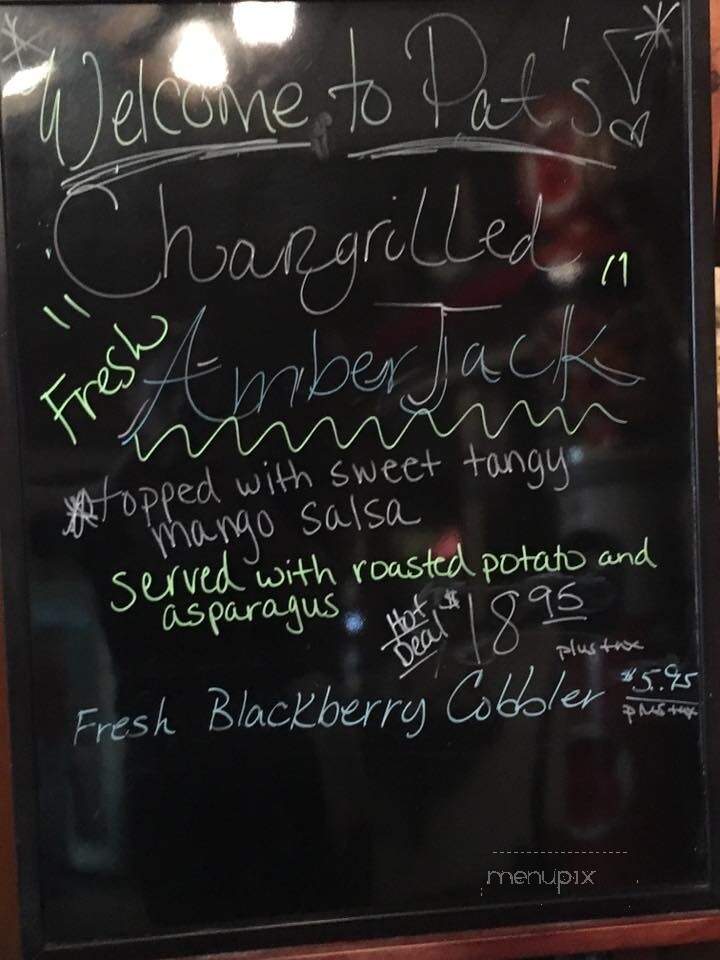 Welcome to Pat's!
Chargrilled
"Fresh AmberJack"
topped with sweet tangy
mango salsa
served with roasted potato and
asparagus
Hot Deal $18.95
plus tax
Fresh Blackberry Cobbler $5.95
plus tax
menupix